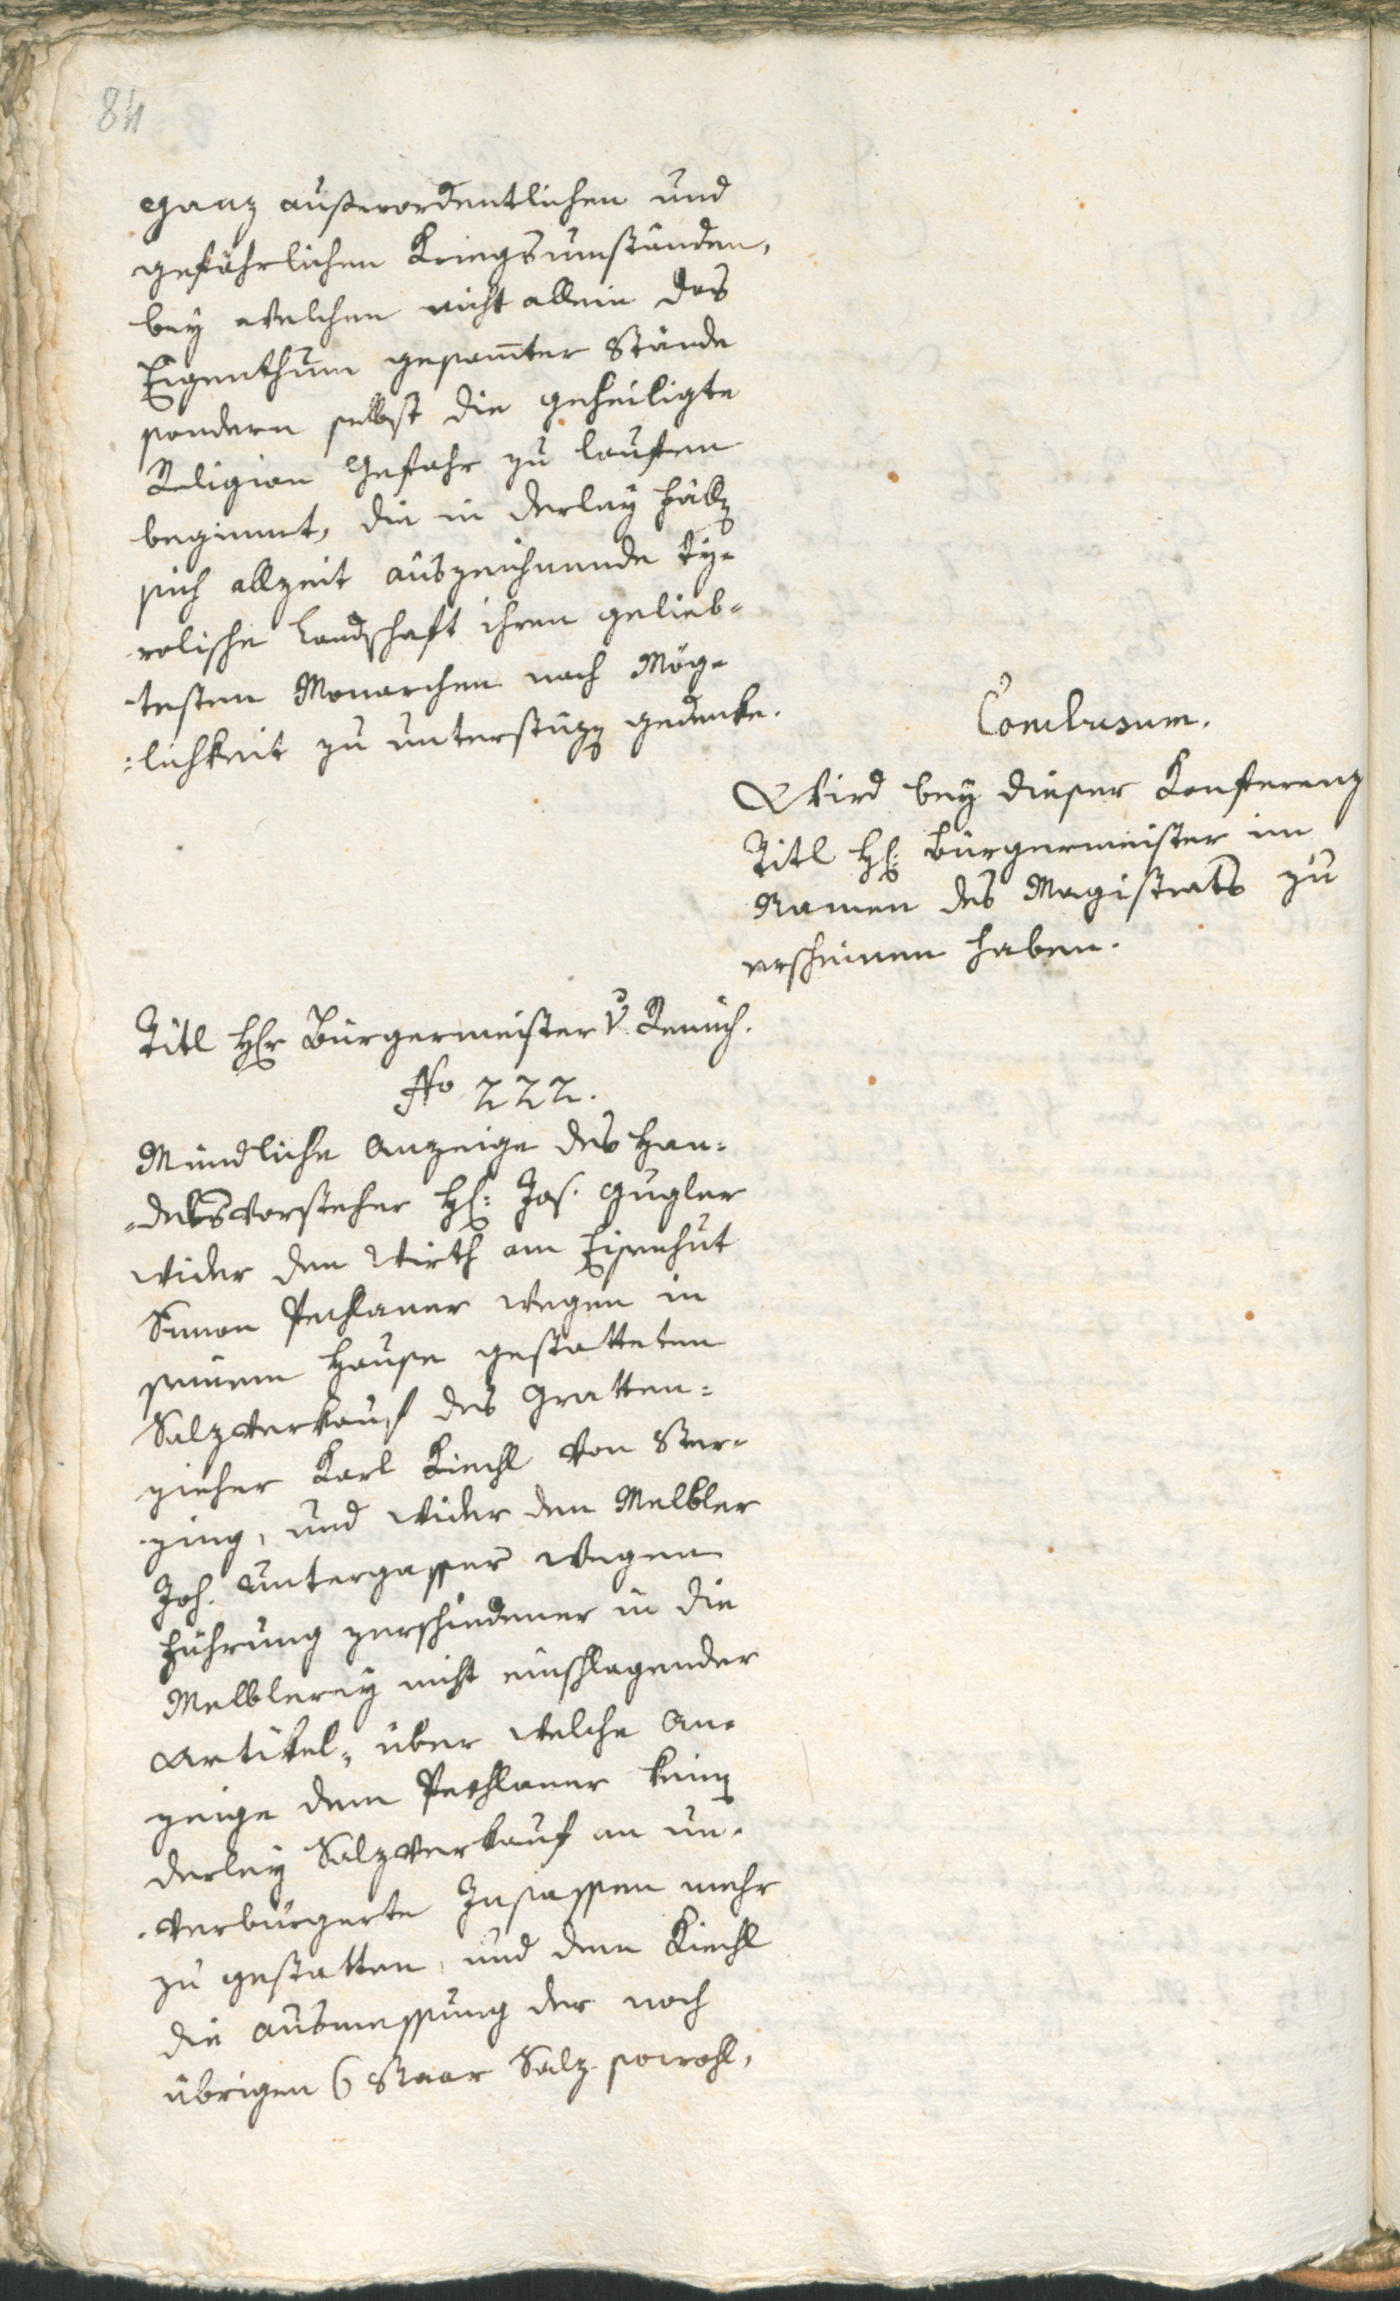 84
ganz ausserordentlichen und
gefährlichen Kriegsumständen,
bey welchen nicht allein das
Eigenthum gesamter Stände
sondern selbst die geheiligte
Religion Gefahr zu lauffen
beginnet, die in derley Fäll
sich allzeit auszeichnende ty-
rolische Landschaft ihren gelieb-
-testen Monarchen nach Mög-
:lichkeit zu unterstüz gedenke.
Conclusum.
Wird bey dieser Konferenz
Titl H: Bürgermeister im
Namen des Magistrats zu
erscheinen haben.
Titl Hr Bürgermeister v. Remich.
No 222.
Mündliche Anzeige des Han-
-delsvorsteher H: Jos. Gugler
wider den Wirth am Eisenhut
Simon Pechlaner wegen in
seinem Hause gestatteten
Salzverkauf des Gratten-
zieher Karl Kiechl von Ster-
-zing, und wider den Melbler
Joh. Untergasser wegen
Führung zerschiedener in die
Melblerey nicht einschlagender
Artikel, über welche An-
zeige dem Pechlaner kein
derley Salzverkauf an un-
-verbürgerte Insassen mehr
zu gestatten, und dem Kiechl
die Ausmessung der noch
übrigen 6 Staar Salz sowohl,